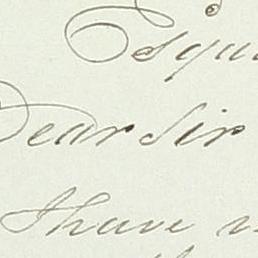 Esqu
Dear Sir
I have